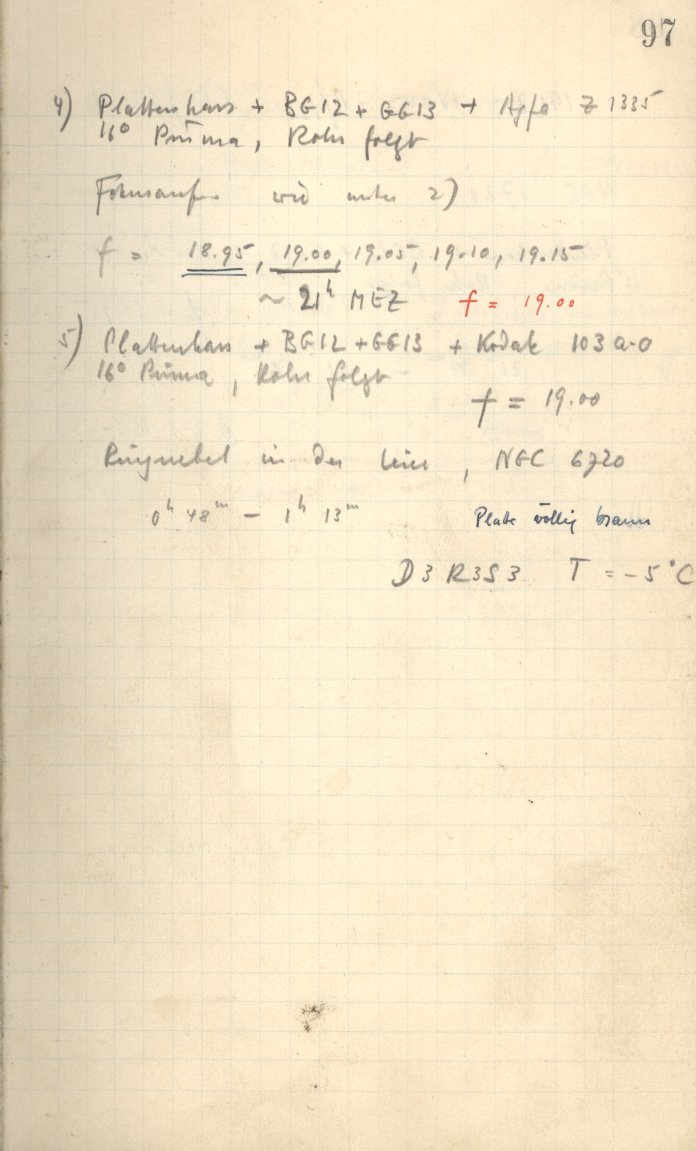 97
4) Plattenhaus + BG12 + GG13 + Agfa Z 1335
16° Prisma, Rohr folgt
wie unter 2)
f = 18.95, 19.00, 19.05, 19.10, 19.15
~ 21h MEZ f = 19.00
5) Plattenhaus + BG12 + GG13 + Kodak 103 a-O
16° Prisma, Rohr folgt
f = 19.00
Ringnebel in der Leier, NGC 6720
0h 48m – 1h 13m Platte völlig braun
D3 R3 S3 T = -5°C